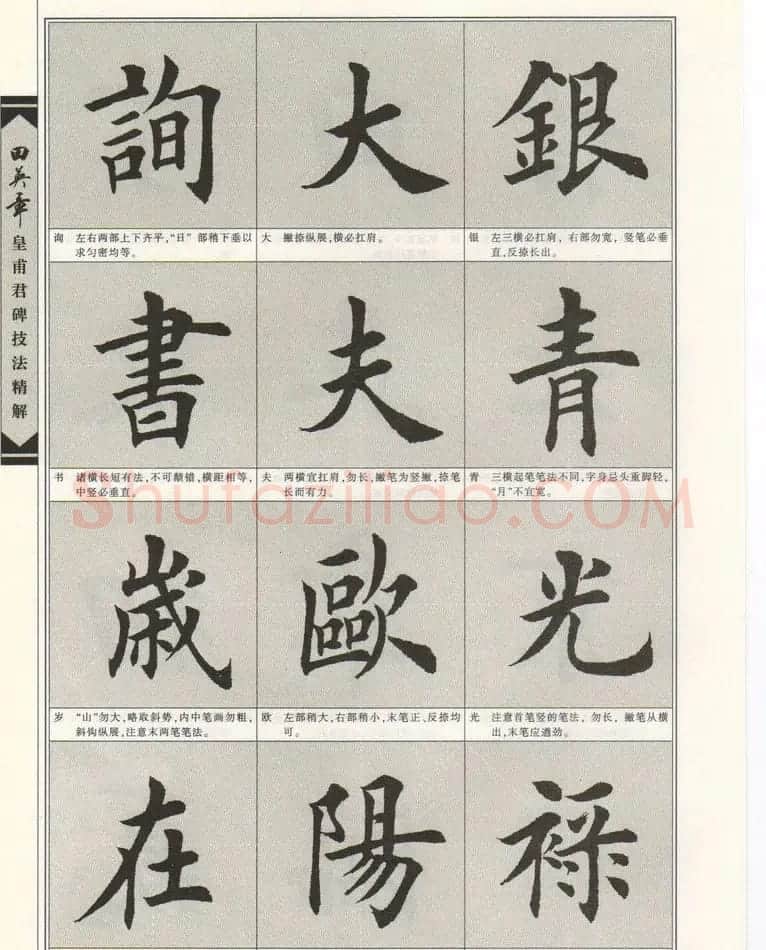 銀
银 左三横必扛肩，右部勿宽，竖笔必垂
直，反捺长出。
青
青 三横起笔笔法不同，字身忌头重脚轻，
“月”不宜宽。
光
光 注意首笔竖的笔法，勿长，撇笔从横
出，末笔应遒劲。
祿
大
大 撇捺纵展，横必扛肩。
夫
夫 两横宜扛肩，勿长，撇笔为竖撇，捺笔
长而有力。
歐
欧 左部稍大，右部稍小，末笔正、反捺均
可。
陽
詢
询 左右两部上下齐平，“日”部稍下垂以
求匀密均等。
書
书 诸横长短有法，不可颠错，横距相等，
中竖必垂直。
歲
岁 “山”勿大，略取斜势，内中笔画勿粗，
斜钩纵展，注意末两笔笔法。
在
田英章皇甫君碑技法精解
Shufaziliao.COM